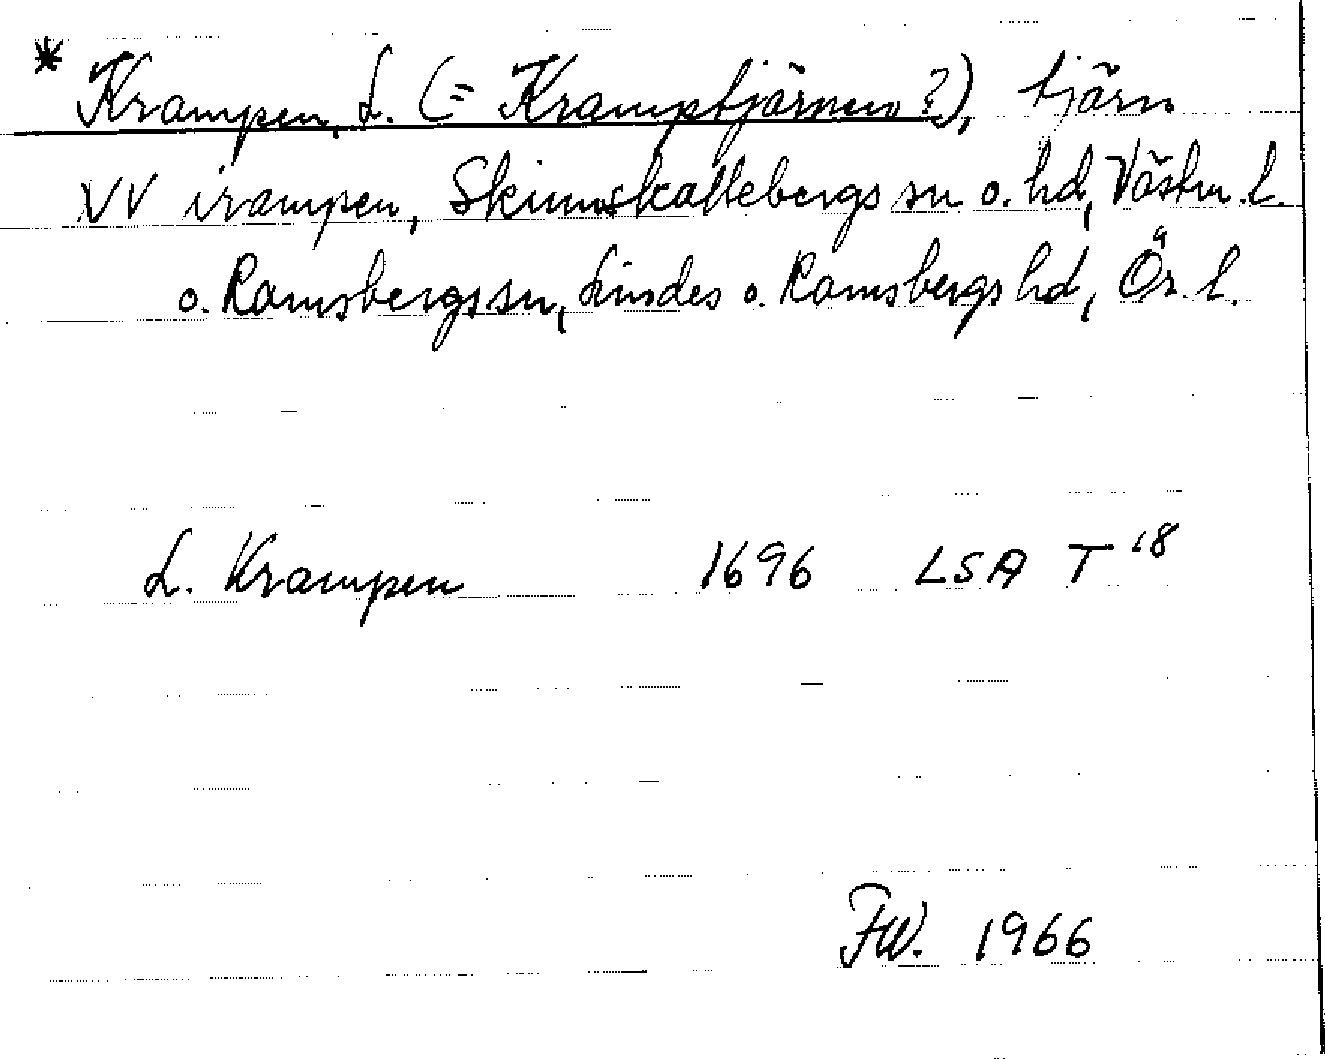 * Krampen, L. (= Kramptjärnen?), tjärn
VV irampen, Skinnskattebergs sn o. hd, Västm. l.
o. Ramsbergs sn, Lindes o. Ramsbergs hd, Ör. l.
L. Krampen 1696 LSA T 18
FW. 1966